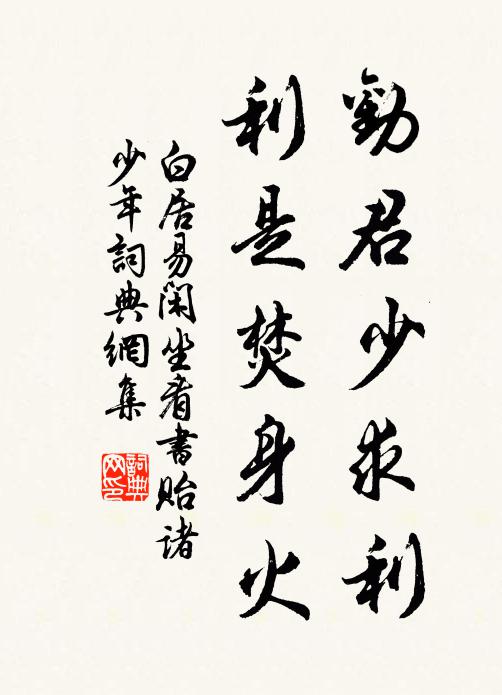 勸君少求利
利是焚身火
白居易閑坐看書貽諸
少年詞典網集
詞典
网印